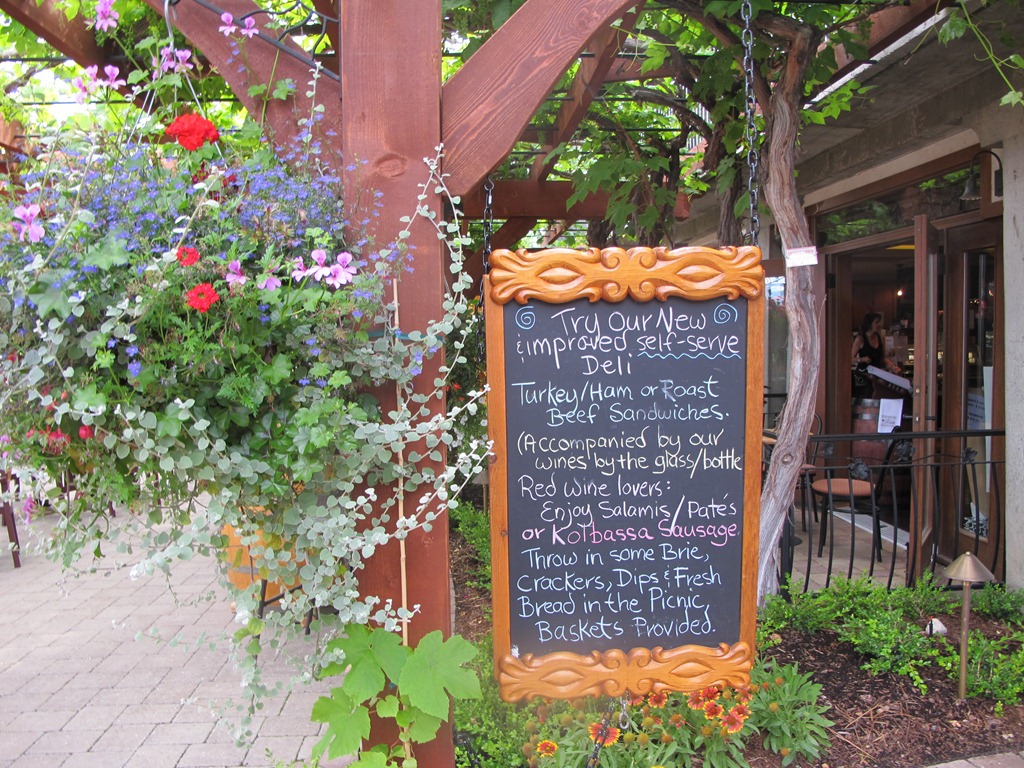 Try Our New
& improved self-serve
Deli
Turkey/Ham or Roast
Beef Sandwiches.
(Accompanied by our
wines by the glass/bottle
Red wine lovers:
Enjoy Salamis/Patés
or Kolbassa Sausage.
Throw in some Brie,
Crackers, Dips & Fresh
Bread in the Picnic
Baskets Provided.